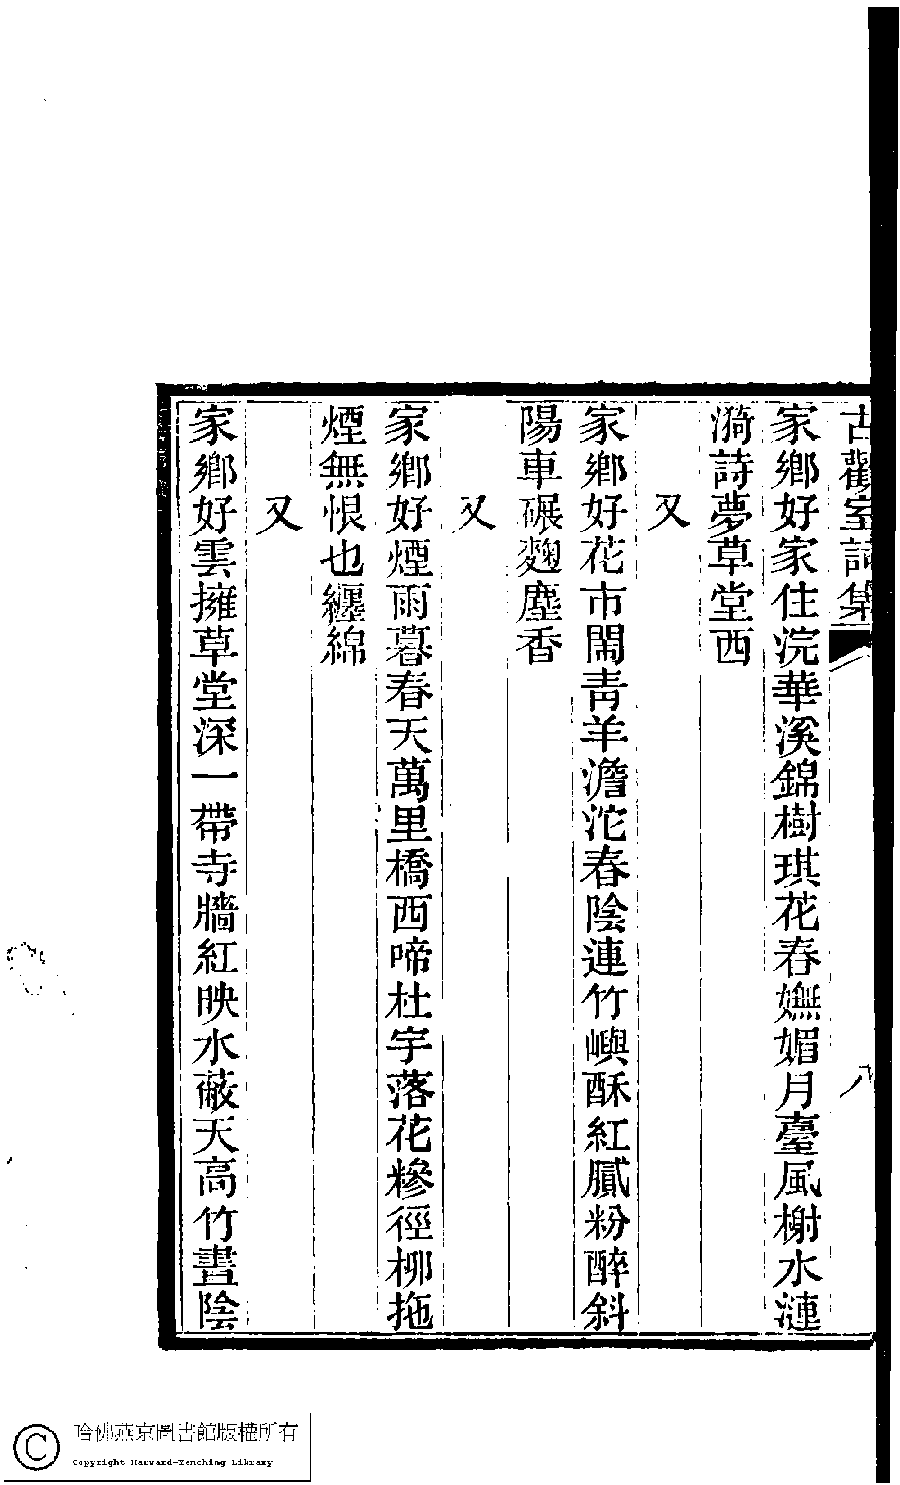 古歡室詩集
八
家鄉好家住浣華溪錦樹琪花春嫵媚月臺風榭水漣
漪詩夢草堂西
又
家鄉好花市鬧青羊澹沱春陰連竹嶼酥紅膩粉醉斜
陽車碾麴塵香
又
家鄉好煙雨暮春天萬里橋西啼杜宇落花糝徑柳拖
煙無恨也纏綿
又
家鄉好雲擁草堂深一帶寺牆紅映水蔽天高竹晝陰
哈佛燕京圖書館版權所有
Copyright Harvard-Yenching Library